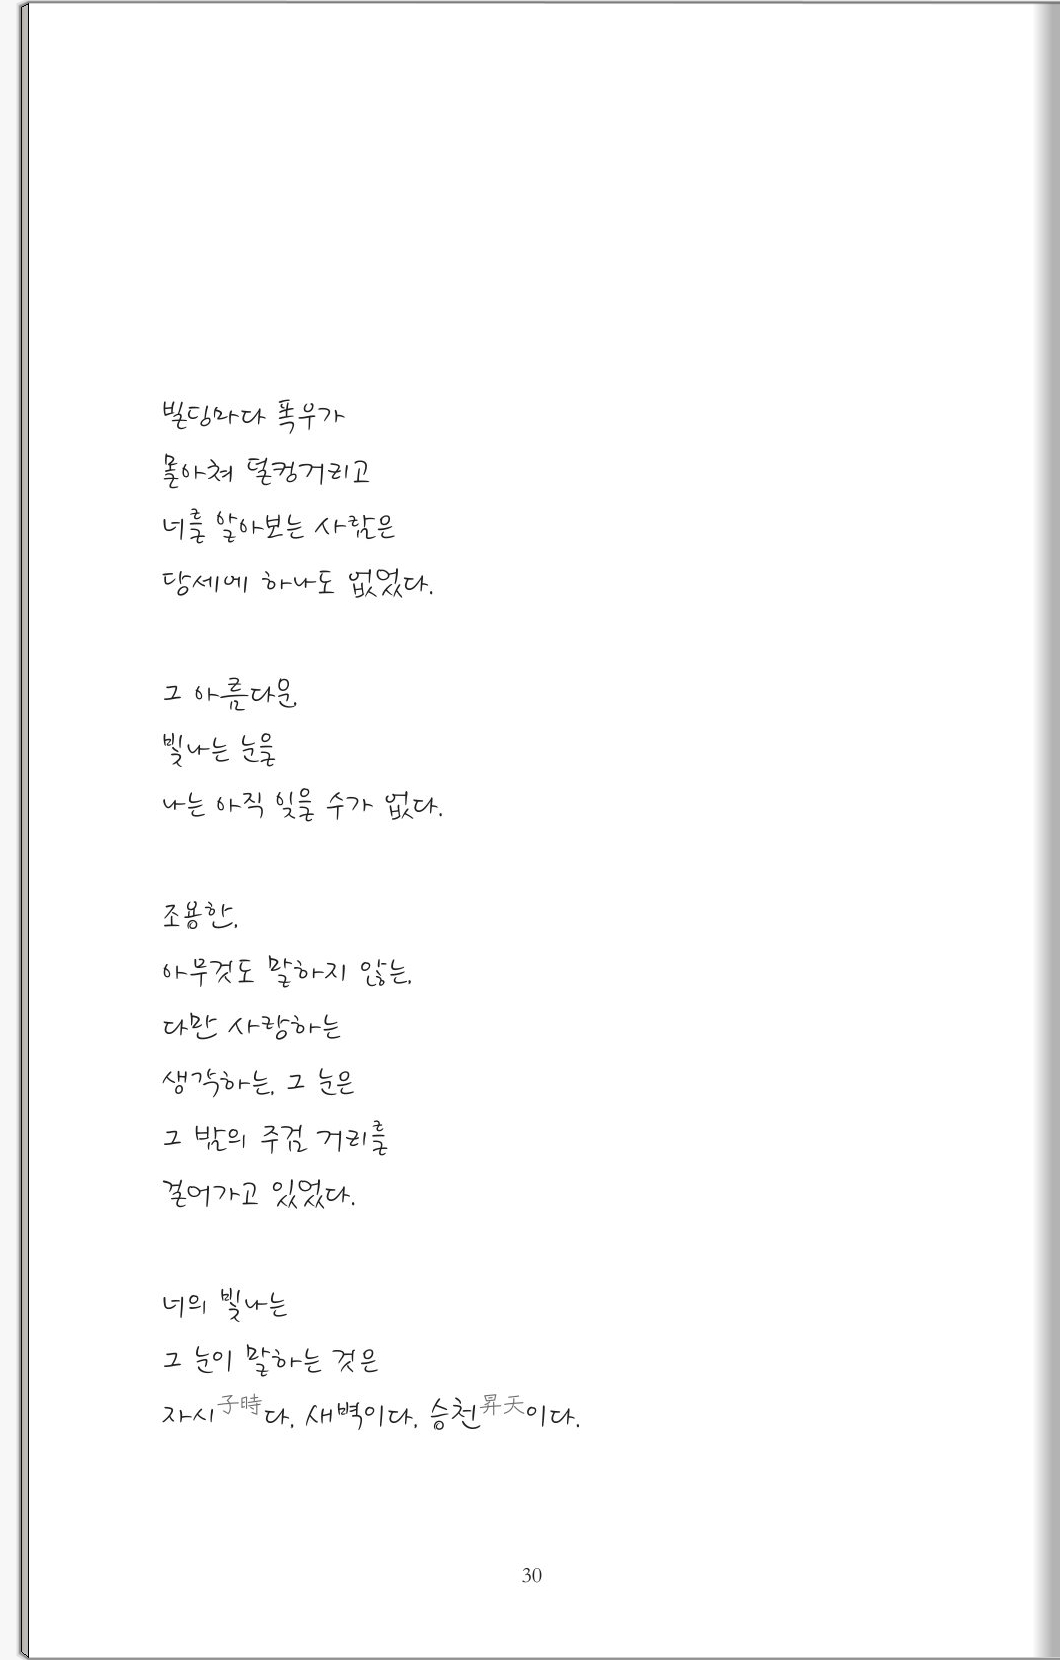 빌딩마다 폭우가
몰아쳐 덜컹거리고
너를 알아보는 사람은
당세에 하나도 없었다.
그 아름다운,
빛나는 눈을
나는 아직 잊을 수가 없다.
조용한,
아무것도 말하지 않는,
다만 사랑하는
생각하는, 그 눈은
그 밤의 주검 거리를
걸어가고 있었다.
너의 빛나는
그 눈이 말하는 것은
자시子時다, 새벽이다, 승천昇天이다.
30